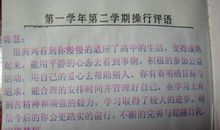 第一学年第二学期操行评语
陈慧:
很高兴看到你慢慢的适应了高中的生活,变得成熟
起来,能用平静的心态去看到事物。积极的参加公益
活动,用自己的爱心去帮助别人。你有着明确目标与
追求,能合理的安排时间并管理好自己,在学习上有
刻苦的精神和顽强的毅力,学习取得了较大的进步,相
信今后的你会更踏实的前行,不断的完善与超越自我